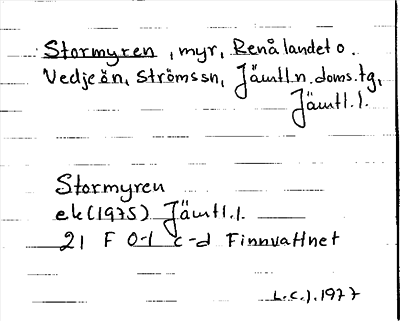 Stormyren, myr, Renålandet o.
Vedjeön, Strömssn, Jämtl.n.doms.tg,
Jämtl.l.
Stormyren
ek(1975) Jämtl.l.
21 F 0-1 c-d Finnvattnet
L.C.J. 1977